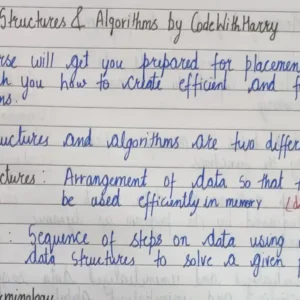 Structures & Algorithms by CodeWithHarry
will get you prepared for
you how to create efficient and
and algorithms are two
: Arrangement of data so that
be used efficiently in memory
: Sequence of steps on data using
data structures to solve a given